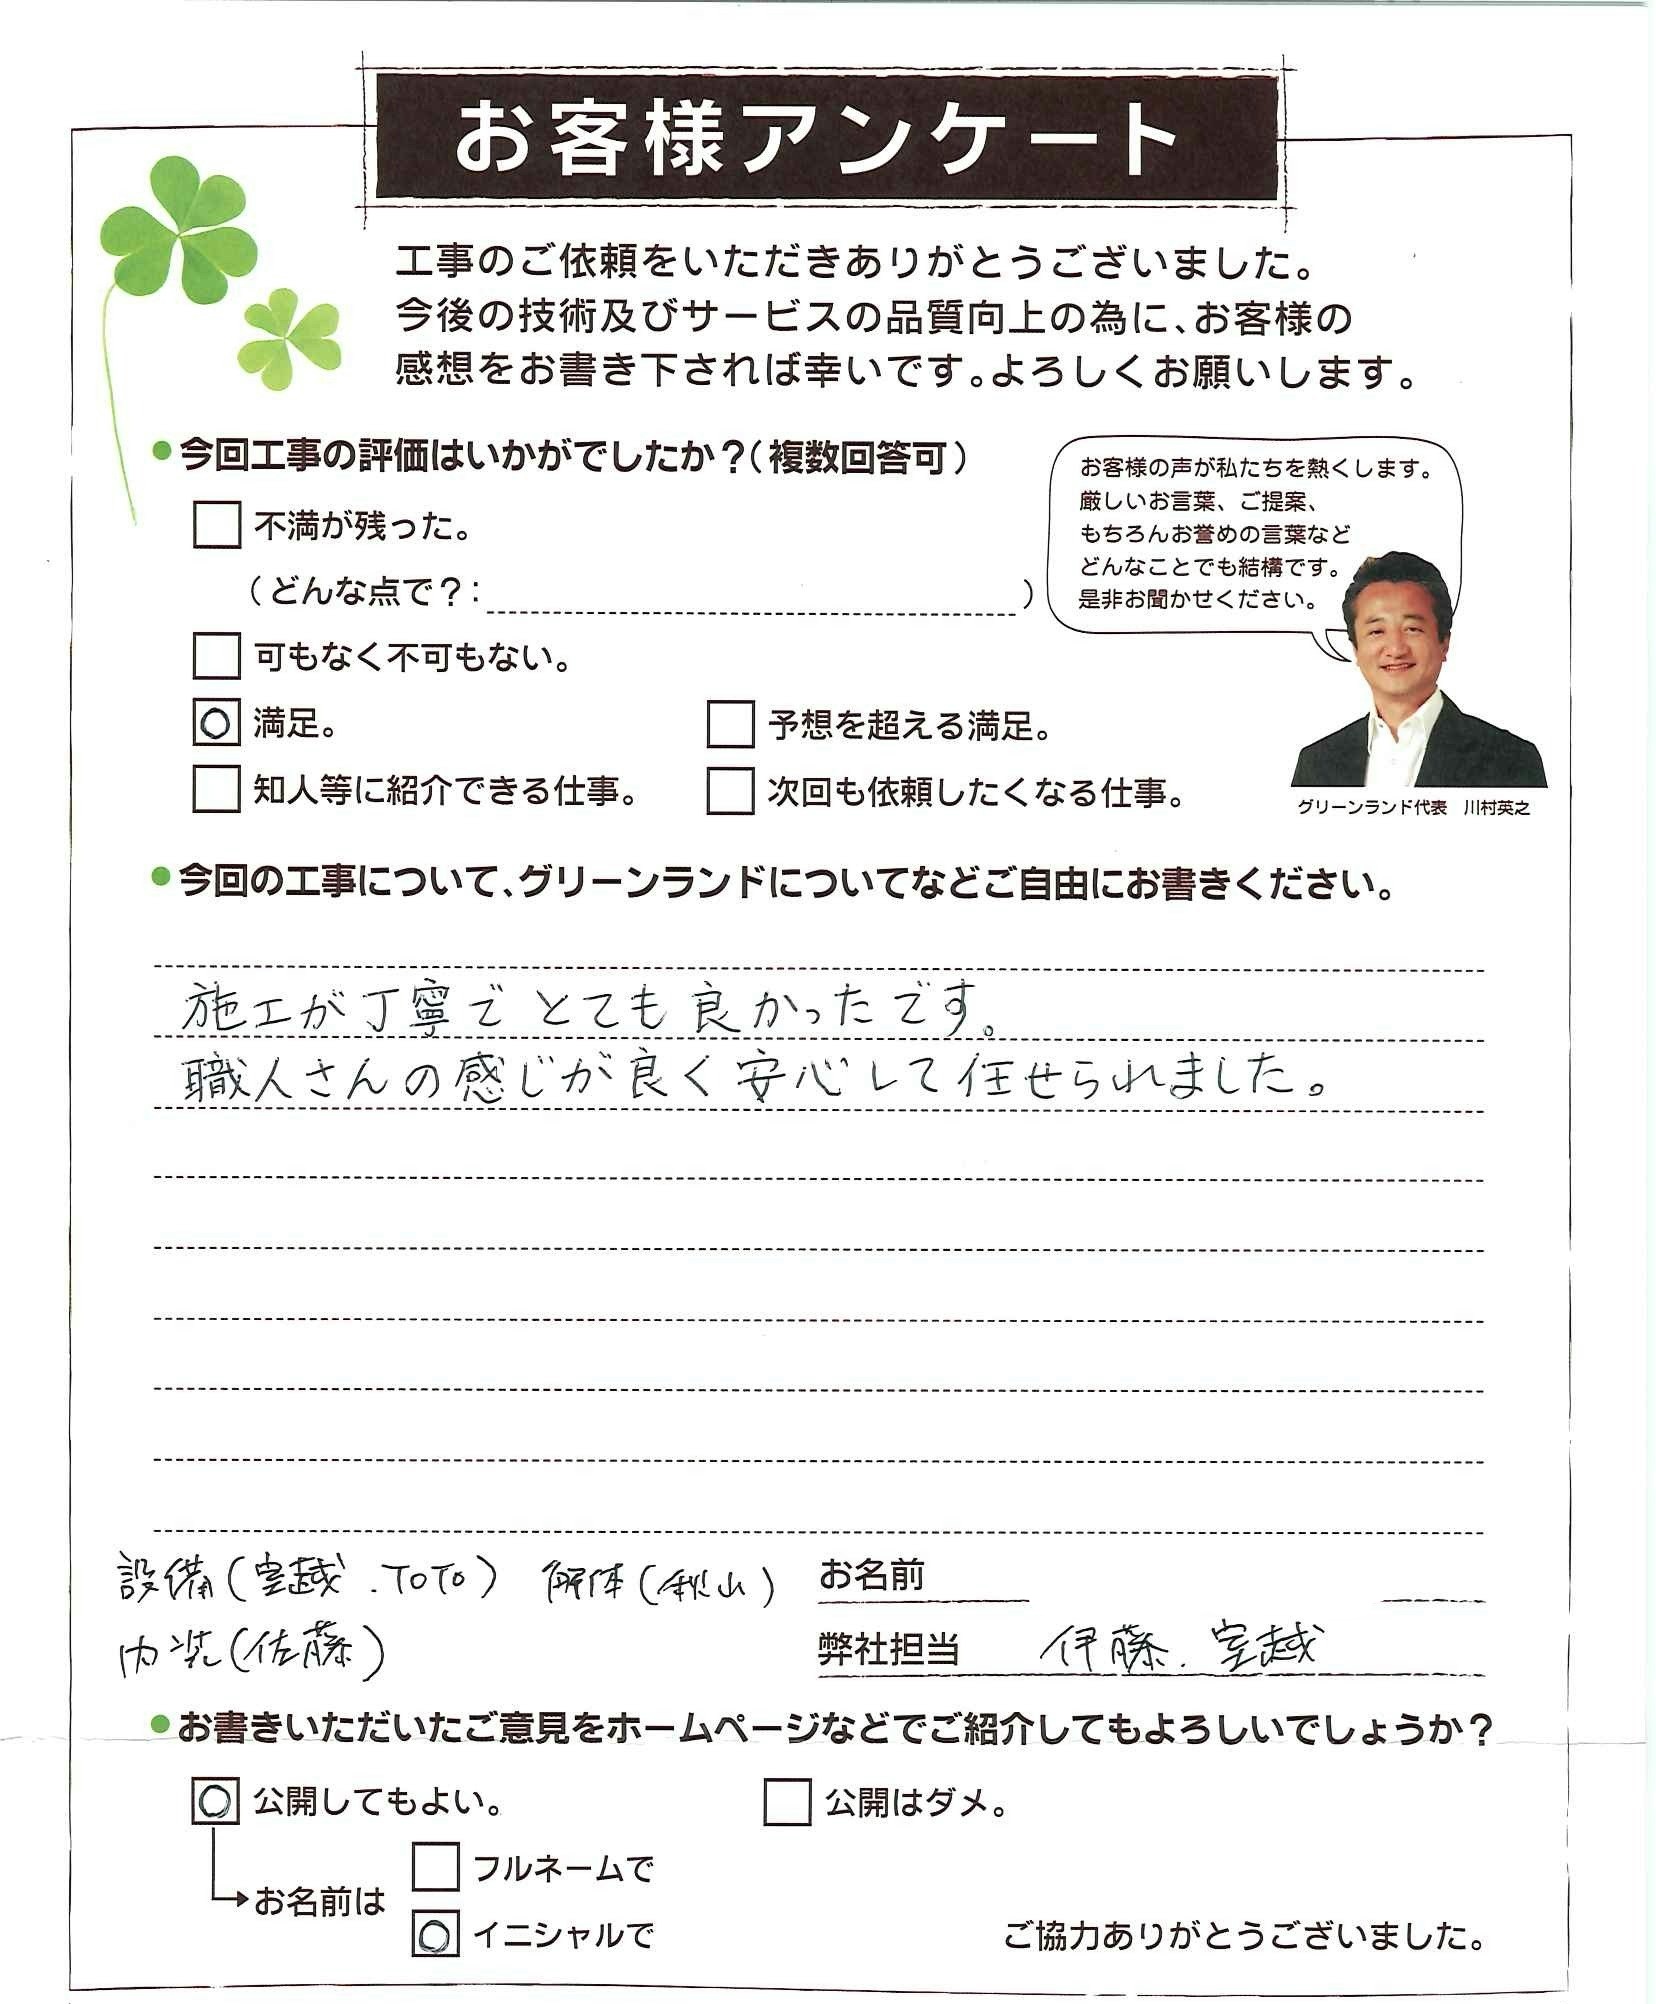 お客様アンケート
工事のご依頼をいただきありがとうございました。
今後の技術及びサービスの品質向上の為に、お客様の
感想をお書き下されば幸いです。よろしくお願いします。
●今回工事の評価はいかがでしたか？（複数回答可）
お客様の声が私たちを熱くします。
厳しいお言葉、ご提案、
もちろんお誉めの言葉など
どんなことでも結構です。
是非お聞かせください。
グリーンランド代表　川村英之
不満が残った。
（どんな点で？：　）
可もなく不可もない。
○ 満足。
予想を超える満足。
知人等に紹介できる仕事。
次回も依頼したくなる仕事。
●今回の工事について、グリーンランドについてなどご自由にお書きください。
施工が丁寧でとても良かったです。
職人さんの感じが良く安心して任せられました。
設備（室越．TOTO） 解体（秋山）
内装（佐藤）
お名前
弊社担当　伊藤．室越
●お書きいただいたご意見をホームページなどでご紹介してもよろしいでしょうか？
○ 公開してもよい。
公開はダメ。
お名前は
フルネームで
○ イニシャルで
ご協力ありがとうございました。